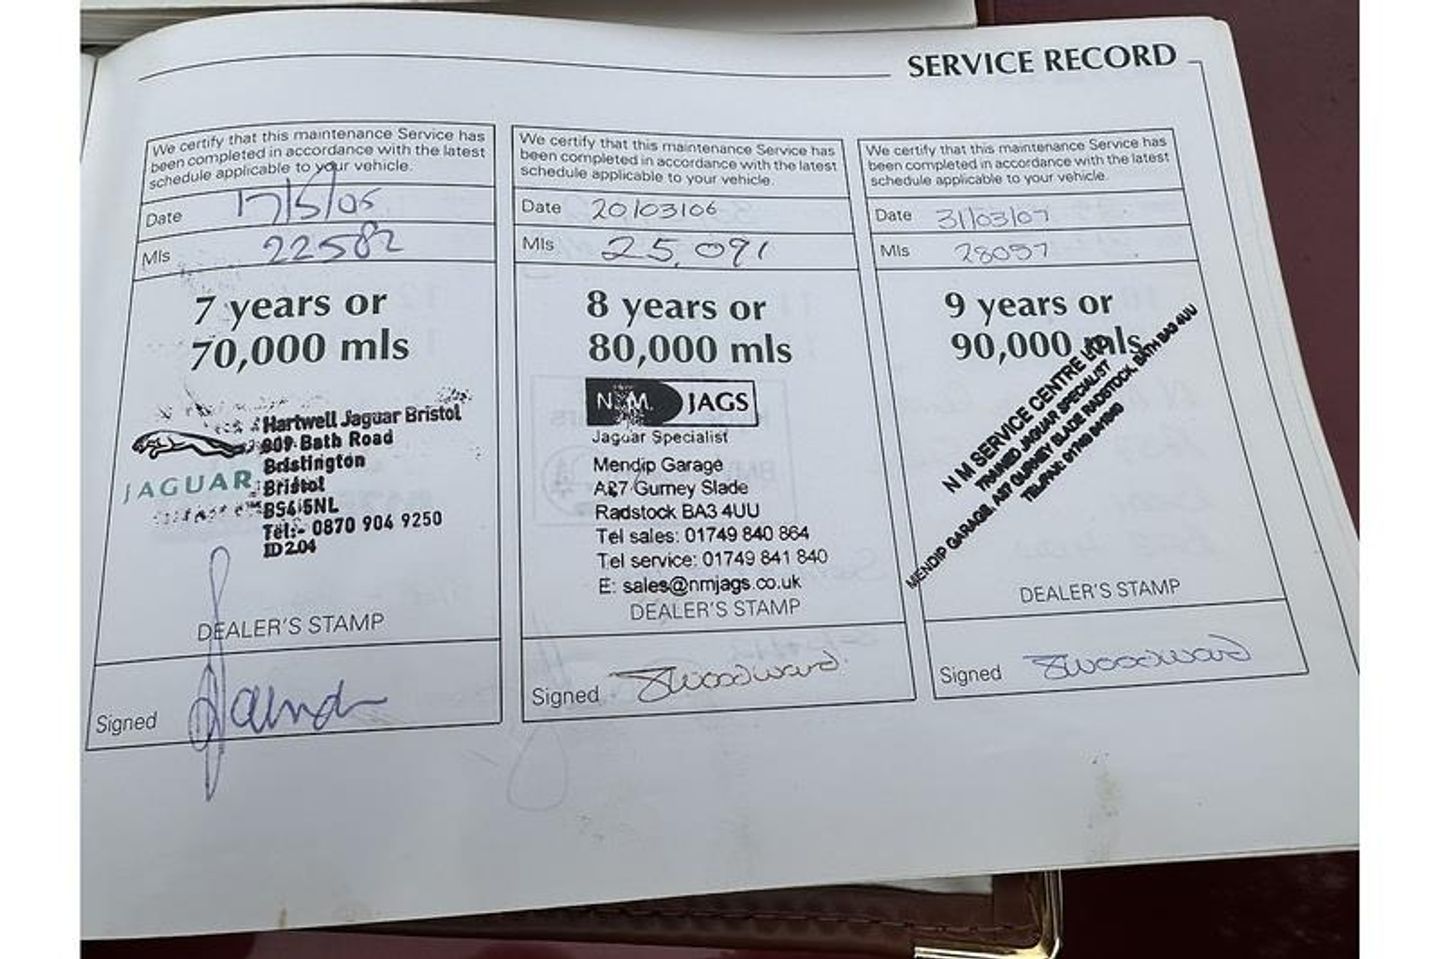 SERVICE RECORD
We certify that this maintenance Service has
been completed in accordance with the latest
schedule applicable to your vehicle.
Date 17/5/05
Mls 22582
7 years or
70,000 mls
JAGUAR
Hartwell Jaguar Bristol
909 Bath Road
Brislington
Bristol
BS4 5NL
Tel:- 0870 904 9250
ID 2.04
DEALER'S STAMP
Signed
We certify that this maintenance Service has
been completed in accordance with the latest
schedule applicable to your vehicle.
Date 20/03/06
Mls 25,091
8 years or
80,000 mls
N.M. JAGS
Jaguar Specialist
Mendip Garage
A37 Gurney Slade
Radstock BA3 4UU
Tel sales: 01749 840 864
Tel service: 01749 841 840
E: sales@nmjags.co.uk
DEALER'S STAMP
Signed SWoodward
We certify that this maintenance Service has
been completed in accordance with the latest
schedule applicable to your vehicle.
Date 31/03/07
Mls 28097
9 years or
90,000 mls
N M SERVICE CENTRE LTD
TRAINED JAGUAR SPECIALIST
MENDIP GARAGE, A37 GURNEY SLADE RADSTOCK, BATH BA3 4UU
DEALER'S STAMP
Signed SWoodward